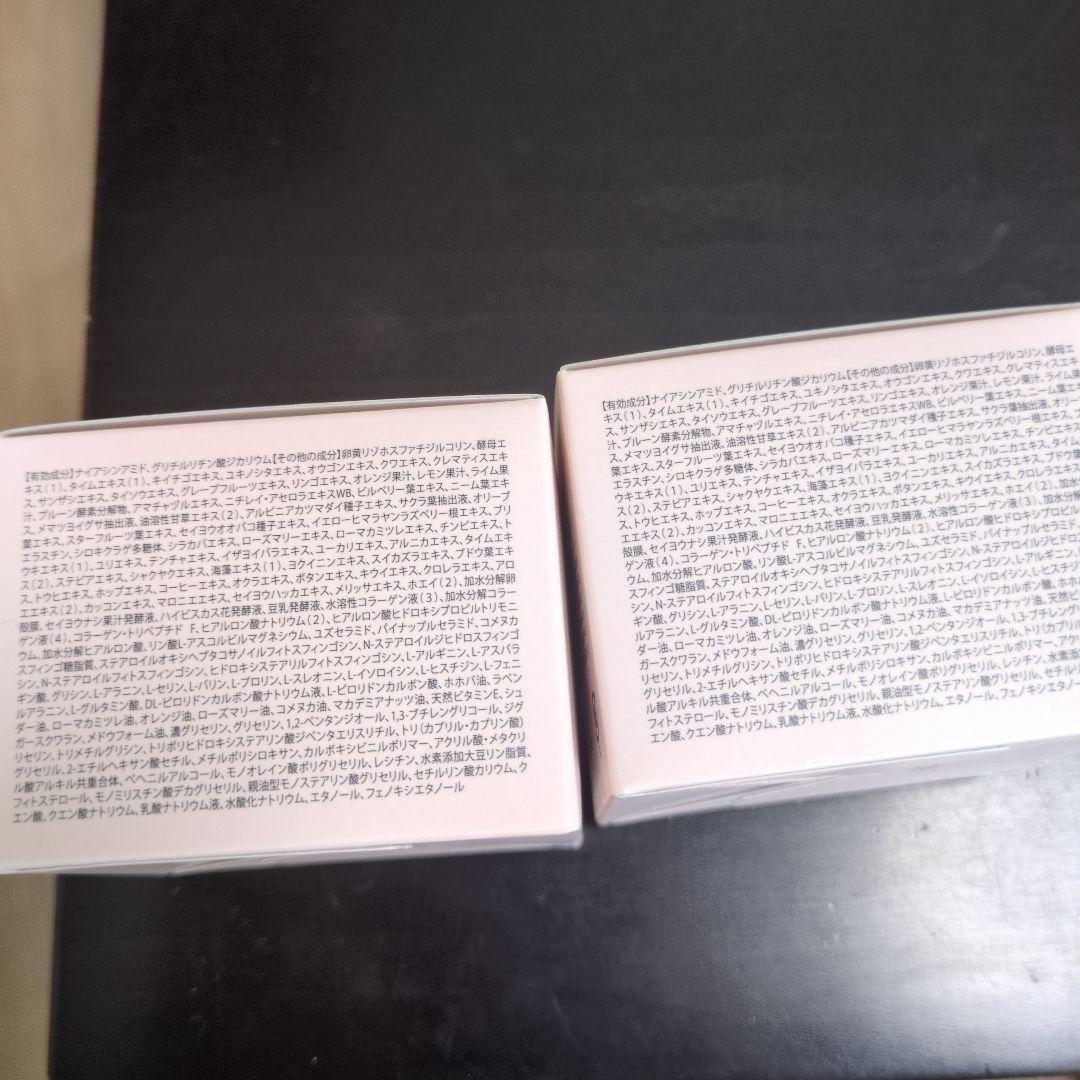 【有効成分】ナイアシンアミド、グリチルリチン酸ジカリウム【その他の成分】卵黄リゾホスファチジルコリン、酵母エ
キス(1)、タイムエキス(1)、キイチゴエキス、ユキノシタエキス、オウゴンエキス、クワエキス、クレマティスエキ
ス、サンザシエキス、タイソウエキス、グレープフルーツエキス、リンゴエキス、オレンジ果汁、レモン果汁、ライム果
汁、プルーン酵素分解物、アマチャヅルエキス、ニチレイ・アセロラエキスWB、ビルベリー葉エキス、ニーム葉エキ
ス、メマツヨイグサ抽出液、油溶性甘草エキス(2)、アルピニアカツマダイ種子エキス、サクラ葉抽出液、オリーブ
葉エキス、スターフルーツ葉エキス、セイヨウオオバコ種子エキス、イエローヒマラヤンラズベリー根エキス、プリ
エラスチン、シロキクラゲ多糖体、シラカバエキス、ローズマリーエキス、ローマカミツレエキス、チンピエキス、ト
ウキエキス(1)、ユリエキス、テンチャエキス、イザヨイバラエキス、ユーカリエキス、アルニカエキス、タイムエキ
ス(2)、ステビアエキス、シャクヤクエキス、海藻エキス(1)、ヨクイニンエキス、スイカズラエキス、ブドウ葉エキ
ス、トウヒエキス、ホップエキス、コーヒーエキス、オクラエキス、ボタンエキス、キウイエキス、クロレラエキス、アロ
エエキス(2)、カッコンエキス、マロニエエキス、セイヨウハッカエキス、メリッサエキス、ホエイ(2)、加水分解卵
殻膜、セイヨウナシ果汁発酵液、ハイビスカス花発酵液、豆乳発酵液、水溶性コラーゲン液(3)、加水分解コラー
ゲン液(4)、コラーゲン・トリペプチド F、ヒアルロン酸ナトリウム(2)、ヒアルロン酸ヒドロキシプロピルトリモニ
ウム、加水分解ヒアルロン酸、リン酸L-アスコルビルマグネシウム、ユズセラミド、パイナップルセラミド、コメヌカ
スフィンゴ糖脂質、ステアロイルオキシヘプタコサノイルフィトスフィンゴシン、N-ステアロイルジヒドロスフィンゴ
シン、N-ステアロイルフィトスフィンゴシン、ヒドロキシステアリルフィトスフィンゴシン、L-アルギニン、L-アスパラ
ギン酸、グリシン、L-アラニン、L-セリン、L-バリン、L-プロリン、L-スレオニン、L-イソロイシン、L-ヒスチジン、L-フェニ
ルアラニン、L-グルタミン酸、DL-ピロリドンカルボン酸ナトリウム液、L-ピロリドンカルボン酸、ホホバ油、ラベン
ダー油、ローマカミツレ油、オレンジ油、ローズマリー油、コメヌカ油、マカデミアナッツ油、天然ビタミンE、シュ
ガースクワラン、メドウフォーム油、濃グリセリン、グリセリン、1,2-ペンタンジオール、1,3-ブチレングリコール、ジグ
リセリン、トリメチルグリシン、トリポリヒドロキシステアリン酸ジペンタエリスリチル、トリ(カプリル・カプリン酸)
グリセリル、2-エチルヘキサン酸セチル、メチルポリシロキサン、カルボキシビニルポリマー、アクリル酸・メタクリ
ル酸アルキル共重合体、ベヘニルアルコール、モノオレイン酸ポリグリセリル、レシチン、水素添加大豆リン脂質、
フィトステロール、モノミリスチン酸デカグリセリル、親油型モノステアリン酸グリセリル、セチルリン酸カリウム、ク
エン酸、クエン酸ナトリウム、乳酸ナトリウム液、水酸化ナトリウム、エタノール、フェノキシエタノール
【有効成分】ナイアシンアミド、グリチルリチン酸ジカリウム【その他の成分】卵黄リゾホスファチジルコリン、酵母エ
キス(1)、タイムエキス(1)、キイチゴエキス、ユキノシタエキス、オウゴンエキス、クワエキス、クレマティスエキ
ス、サンザシエキス、タイソウエキス、グレープフルーツエキス、リンゴエキス、オレンジ果汁、レモン果汁、ライム果
汁、プルーン酵素分解物、アマチャヅルエキス、ニチレイ・アセロラエキスWB、ビルベリー葉エキス、ニーム葉エ
ス、メマツヨイグサ抽出液、油溶性甘草エキス(2)、アルピニアカツマダイ種子エキス、サクラ葉抽出液、オリー
葉エキス、スターフルーツ葉エキス、セイヨウオオバコ種子エキス、イエローヒマラヤンラズベリー根エキス、プ
エラスチン、シロキクラゲ多糖体、シラカバエキス、ローズマリーエキス、ローマカミツレエキス、チンピエキス
ウキエキス(1)、ユリエキス、テンチャエキス、イザヨイバラエキス、ユーカリエキス、アルニカエキス、タイム
ス(2)、ステビアエキス、シャクヤクエキス、海藻エキス(1)、ヨクイニンエキス、スイカズラエキス、ブドウ
ス、トウヒエキス、ホップエキス、コーヒーエキス、オクラエキス、ボタンエキス、キウイエキス、クロレラエキス
エエキス(2)、カッコンエキス、マロニエエキス、セイヨウハッカエキス、メリッサエキス、ホエイ(2)、加水
殻膜、セイヨウナシ果汁発酵液、ハイビスカス花発酵液、豆乳発酵液、水溶性コラーゲン液(3)、加水分解
ゲン液(4)、コラーゲン・トリペプチド F、ヒアルロン酸ナトリウム(2)、ヒアルロン酸ヒドロキシプロピル
ウム、加水分解ヒアルロン酸、リン酸L-アスコルビルマグネシウム、ユズセラミド、パイナップルセラミド、
スフィンゴ糖脂質、ステアロイルオキシヘプタコサノイルフィトスフィンゴシン、N-ステアロイルジヒドロ
シン、N-ステアロイルフィトスフィンゴシン、ヒドロキシステアリルフィトスフィンゴシン、L-アルギニン、
ギン酸、グリシン、L-アラニン、L-セリン、L-バリン、L-プロリン、L-スレオニン、L-イソロイシン、L-ヒスチジ
ルアラニン、L-グルタミン酸、DL-ピロリドンカルボン酸ナトリウム液、L-ピロリドンカルボン酸、ホホ
ダー油、ローマカミツレ油、オレンジ油、ローズマリー油、コメヌカ油、マカデミアナッツ油、天然ビ
ガースクワラン、メドウフォーム油、濃グリセリン、グリセリン、1,2-ペンタンジオール、1,3-ブチレング
リセリン、トリメチルグリシン、トリポリヒドロキシステアリン酸ジペンタエリスリチル、トリ(カプリル
グリセリル、2-エチルヘキサン酸セチル、メチルポリシロキサン、カルボキシビニルポリマー、アクリ
ル酸アルキル共重合体、ベヘニルアルコール、モノオレイン酸ポリグリセリル、レシチン、水素添
フィトステロール、モノミリスチン酸デカグリセリル、親油型モノステアリン酸グリセリル、セチル
エン酸、クエン酸ナトリウム、乳酸ナトリウム液、水酸化ナトリウム、エタノール、フェノキシエタノ